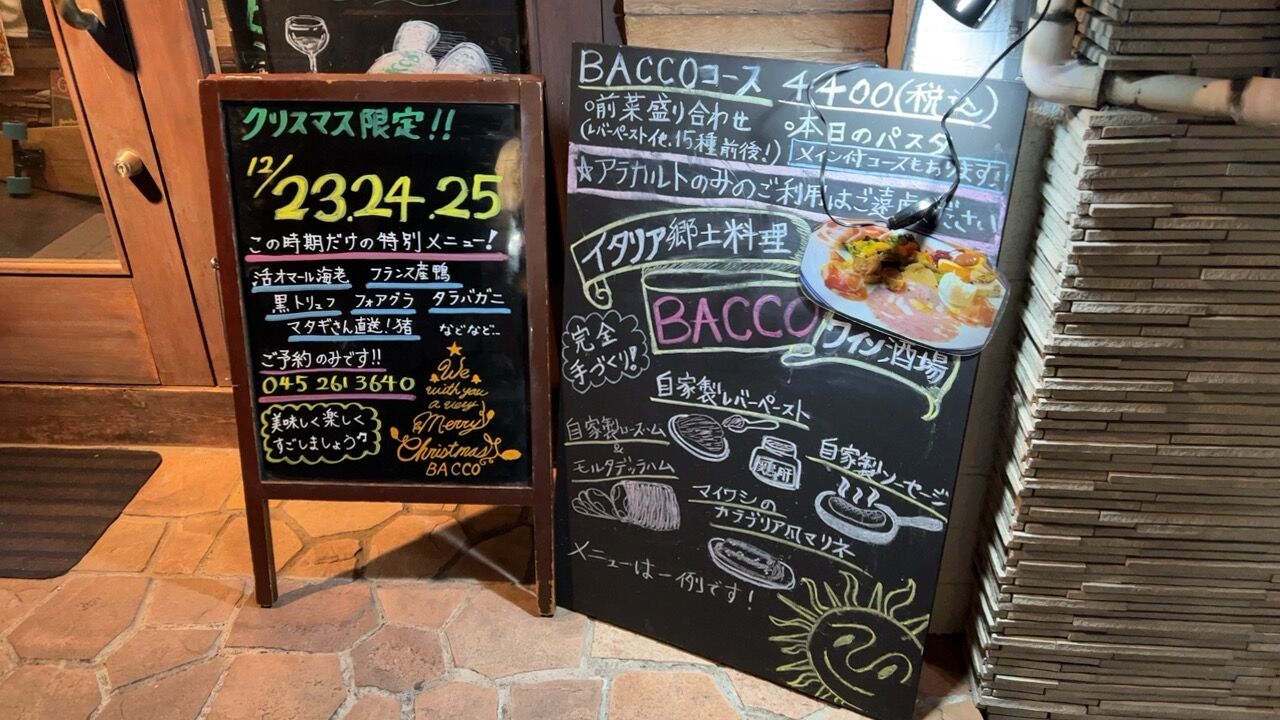 クリスマス限定!!
12/23.24.25
この時期だけの特別メニュー!
活オマール海老 フランス産鴨
黒トリュフ フォアグラ タラバガニ
マタギさん直送!猪 などなど...
ご予約のみです!!
045 261 3640
美味しく楽しく
すごしましょう♪
We
with you
a very
Merry
Christmas
BACCO
BACCOコース 4,400(税込)
○前菜盛り合わせ
(レバーペースト他.15種前後!)
○本日のパスタ
メイン付コースもあります!
☆アラカルトのみのご利用はご遠ください
イタリア郷土料理
BACCO
ワイン酒場
完全
手づくり!
自家製レバーペースト
鶏肝
自家製ロースハム
&
モルタデッラハム
自家製ソーセージ
マイワシの
カラブリア風マリネ
メニューは一例です!